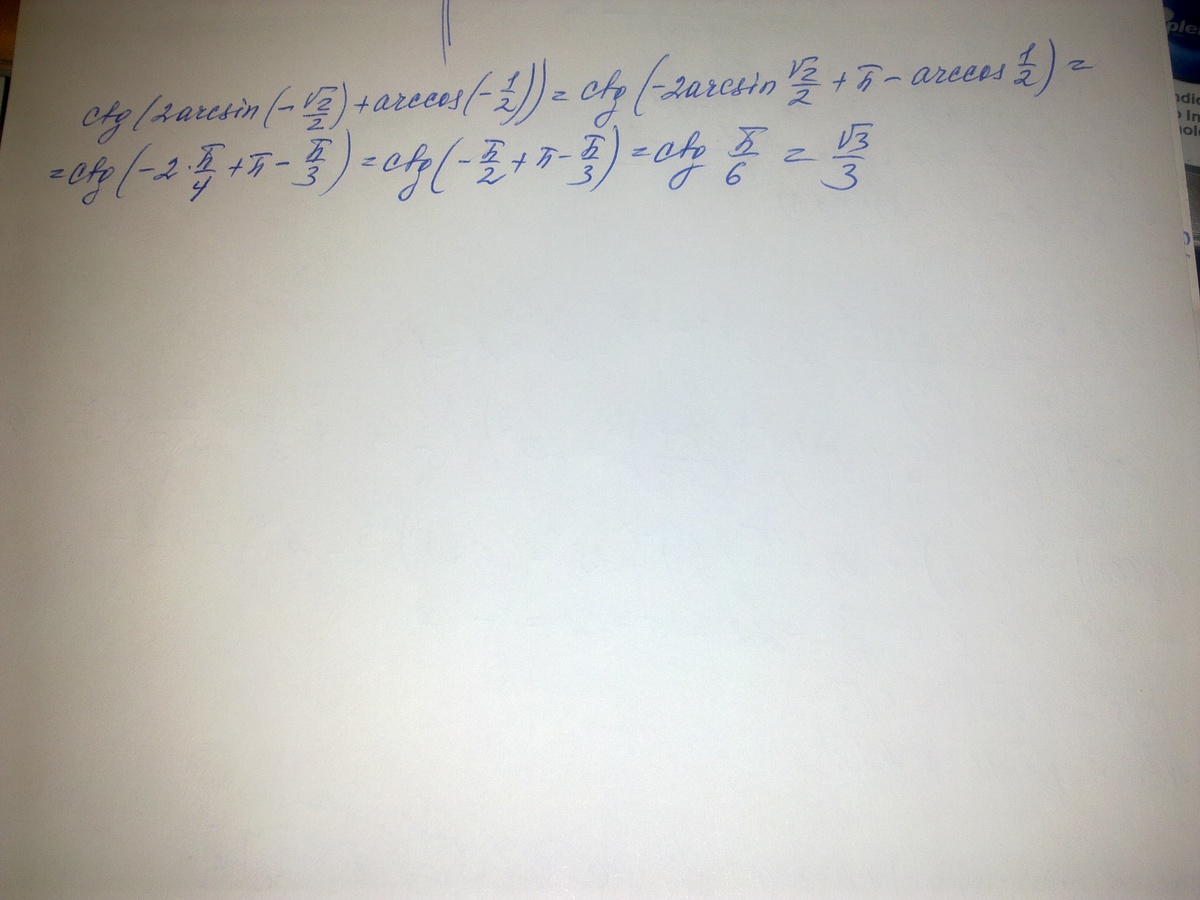 ctg(2arcsin(-√2/2)+arccos(-1/2))=ctg(-2arcsin √2/2+π-arccos 1/2)=
=ctg(-2·π/4+π-π/3)=ctg(-π/2+π-π/3)=ctg π/6=√3/3